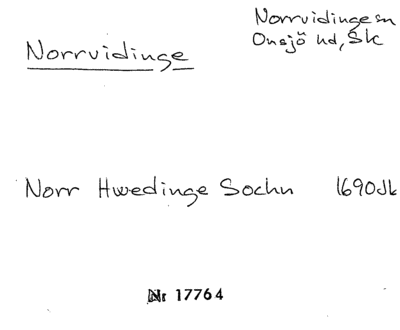 Norrvidinge sn
Onsjö hd, Sk
Norrvidinge
Norr Hwedinge Sochn 1690Jb
Nr 17764